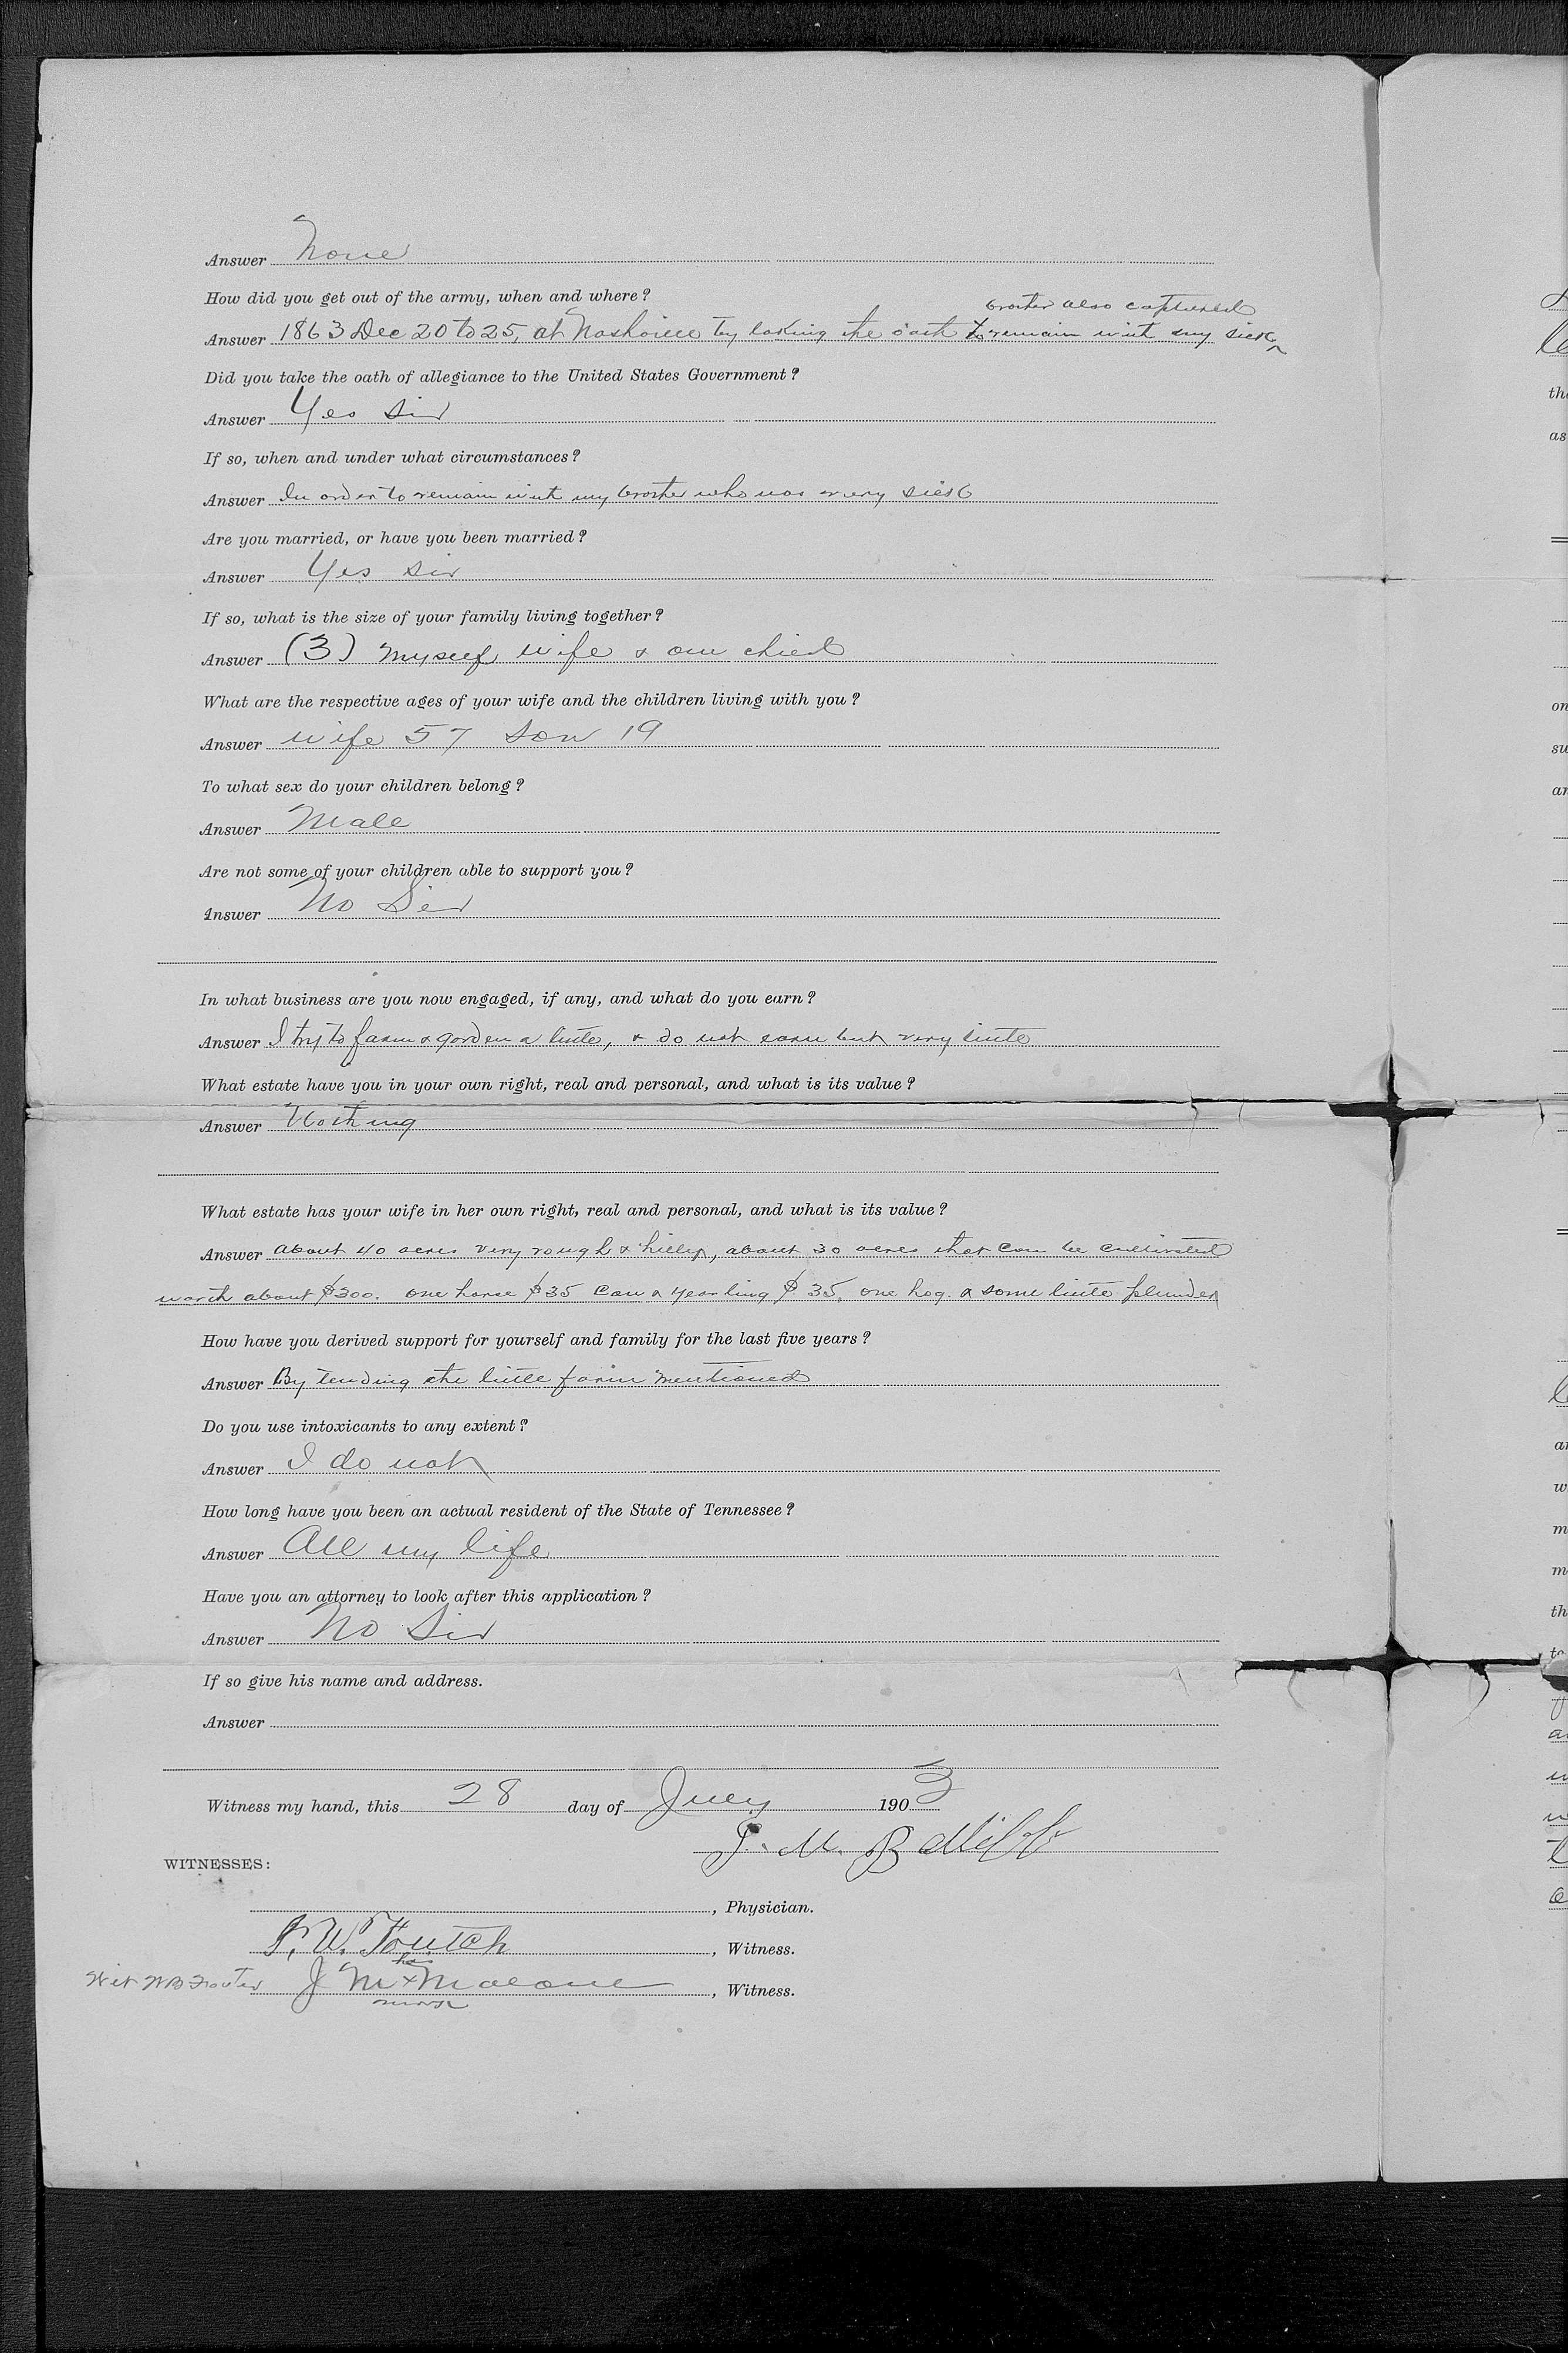 Answer None
How did you get out of the army, when and where?
brother also captured
Answer 1863 Dec 20 to 25, at Nashville by taking the oath to remain with my sick ^
Did you take the oath of allegiance to the United States Government?
Answer Yes Sir
If so, when and under what circumstances?
Answer In order to remain with my brother who was very sick
Are you married, or have you been married?
Answer Yes Sir
If so, what is the size of your family living together?
Answer (3) Myself wife & one child
What are the respective ages of your wife and the children living with you?
Answer wife 57 Son 19
To what sex do your children belong?
Answer Male
Are not some of your children able to support you?
Answer No Sir
In what business are you now engaged, if any, and what do you earn?
Answer I try to farm & garden a little, & do not earn but very little
What estate have you in your own right, real and personal, and what is its value?
Answer Nothing
What estate has your wife in her own right, real and personal, and what is its value?
Answer about 40 acres very rough & hilly, about 30 acres that can be cultivated
worth about $300. one horse $35 Cow & yearling $35, one hog. & some little plunder
How have you derived support for yourself and family for the last five years?
Answer By tending the little farm mentioned
Do you use intoxicants to any extent?
Answer I do not
How long have you been an actual resident of the State of Tennessee?
Answer All my life
Have you an attorney to look after this application?
Answer No Sir
If so give his name and address.
Answer
Witness my hand, this 28 day of July 1903
WITNESSES:
, Physician.
F. W. Foutch, Witness.
his
J M x Malone, Witness.
mark